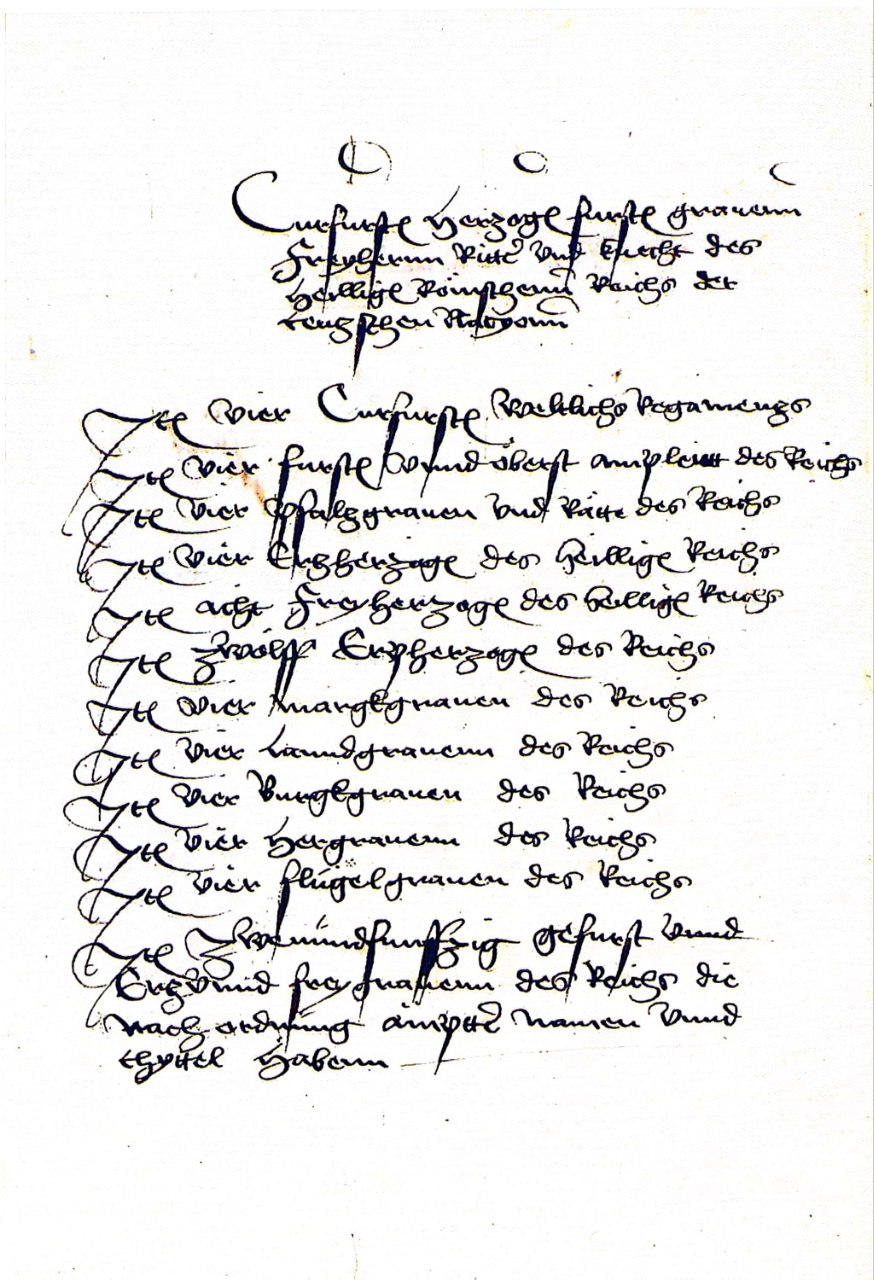 Curfurste Herzoge furste grauenn
Freyhernn Ritter vnd knecht des
Heillige Römschenn Reichs der
teutzschen Nacyonn
Ite vier Curfurste Weltlichs Regamentzs
Ite vier furste vnnd öberst ampleutt des Reichs
Ite vier Pfaltzgrauen vnd Rätte des Reichs
Ite vier Ertzherzoge des heillige Reichs
Ite acht Freyherzoge des heillige Reichs
Ite Zwölff Erpherzoge des Reichs
Ite vier margkgrauen des Reichs
Ite vier Lanndgrauenn des Reichs
Ite vier Burgkgrauen des Reichs
Ite vier Hergrauenn des Reichs
Ite vier flügelgrauen des Reichs
Ite Zweundfunffzig gefurst vnnd
Ertz vnnd freygrauenn des Reichs die
nach ordnung ämptter namen vnnd
thyttel habenn